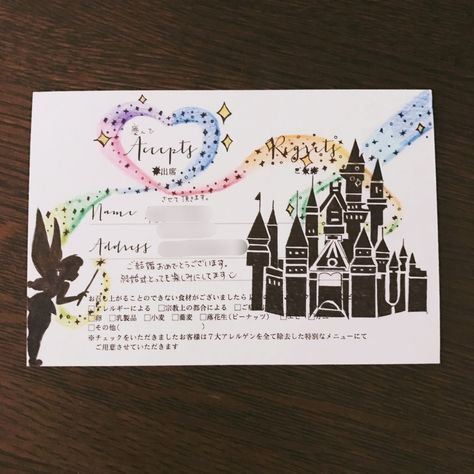 喜んで
Accepts
Regrets
出席
させて頂きます。
Name
Address
ご結婚おめでとうございます。
結婚式とっても楽しみにしてます
お召し上がることのできない食材がございましたら
□アレルギーによる □宗教上の都合による □
□乳製品 □小麦 □蕎麦 □落花生(ピーナッツ)
□その他( )
※チェックをいただきましたお客様は7大アレルゲンを全て除去した特別なメニューにて
ご用意させていただきます